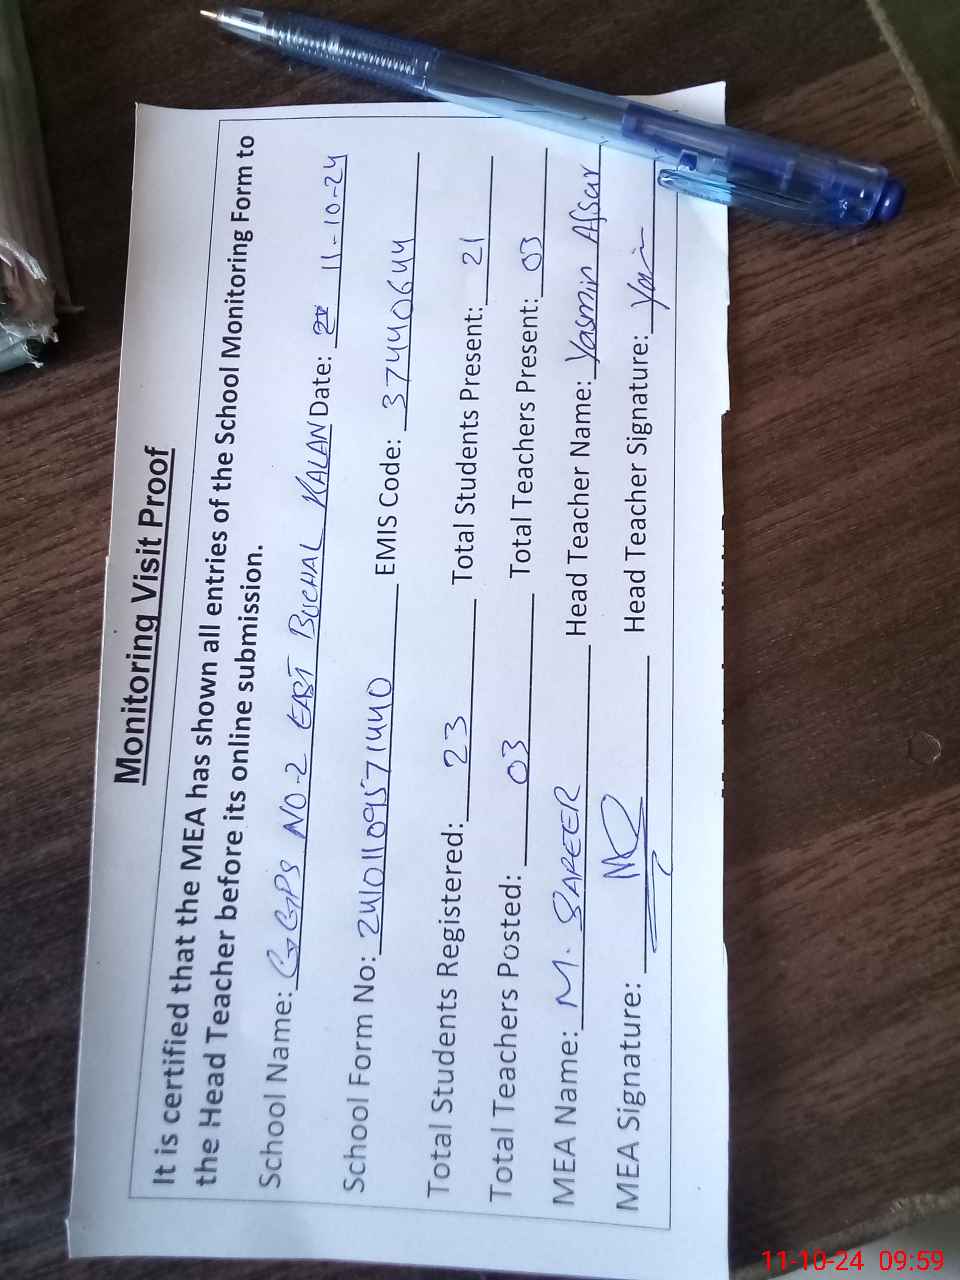 Monitoring Visit Proof
It is certified that the MEA has shown all entries of the School Monitoring Form to
the Head Teacher before its online submission.
School Name: GGPS NO-2 EAST BUCHAL KALAN Date: 11-10-24
School Form No: 24101109571440 EMIS Code: 37440644
Total Students Registered: 23 Total Students Present: 21
Total Teachers Posted: 03 Total Teachers Present: 03
MEA Name: M. SAFEER Head Teacher Name: Yasmin Afsar
MEA Signature: Head Teacher Signature:
11-10-24 09:59